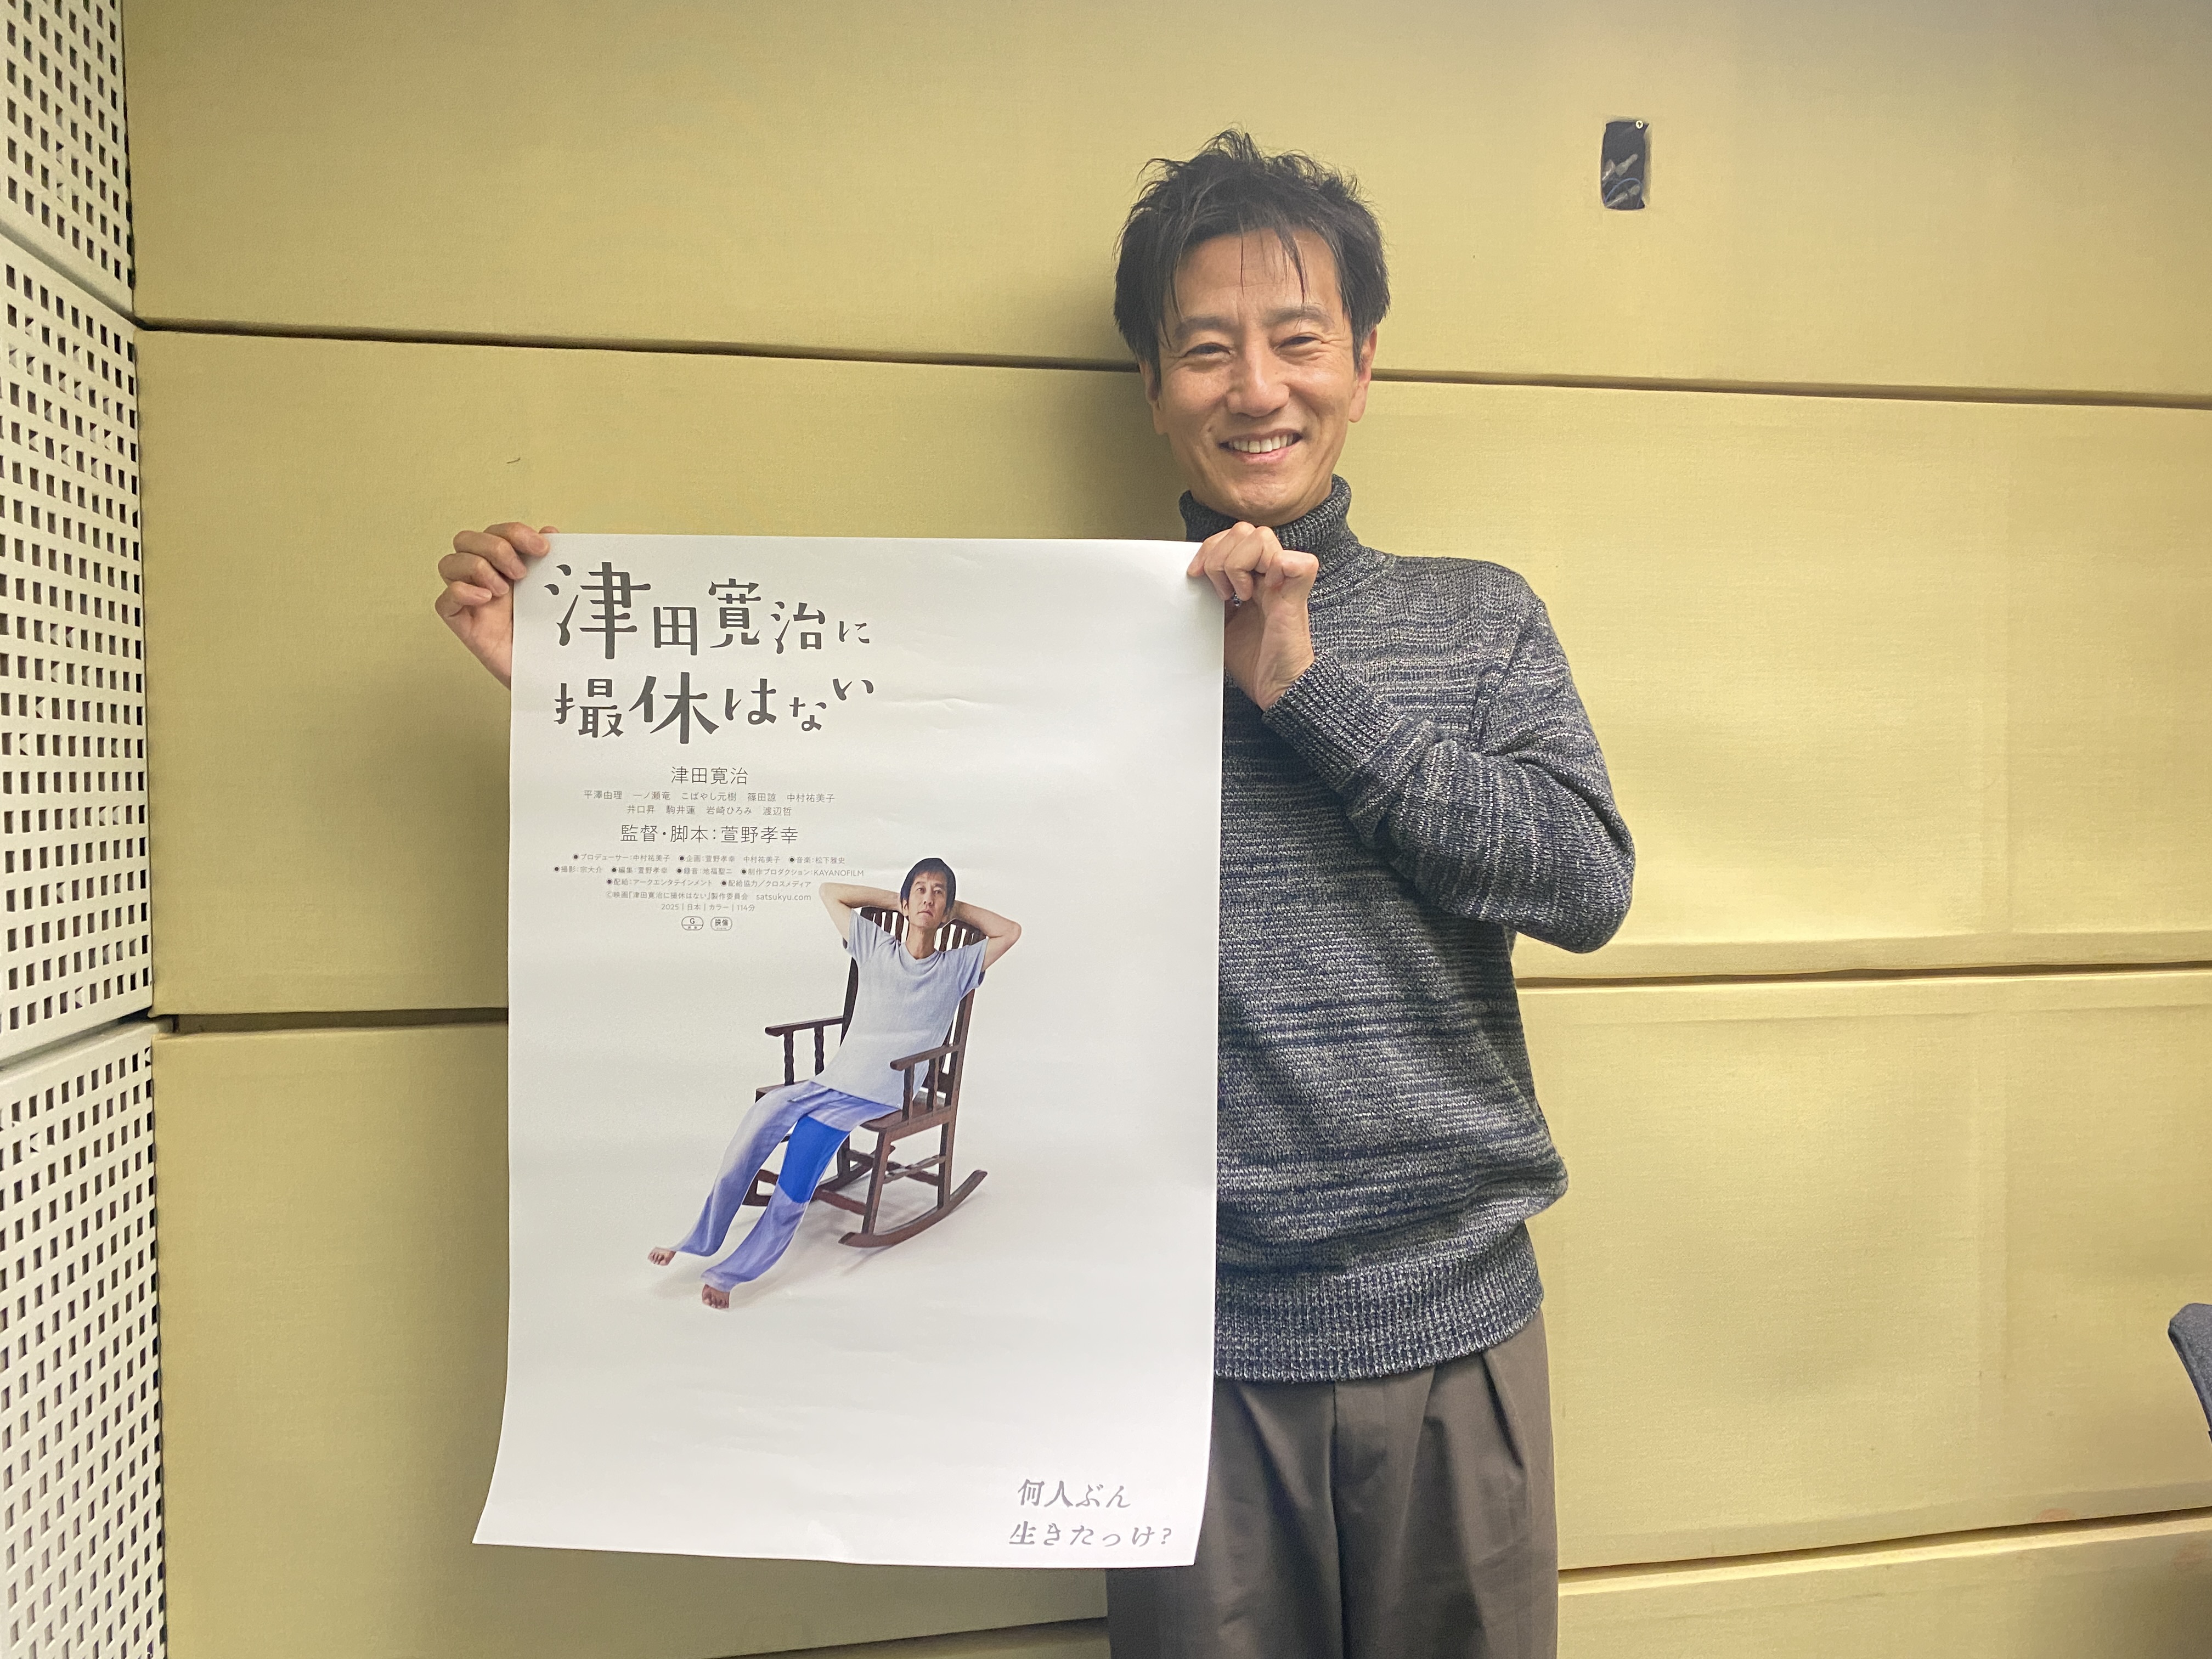 津田寛治に
撮休はない
津田寛治
平澤由理 一ノ瀬竜 こばやし元樹 篠田諒 中村祐美子
井口昇 駒井蓮 岩崎ひろみ 渡辺哲
監督・脚本：萱野孝幸
●プロデューサー：中村祐美子 ●企画：萱野孝幸 中村祐美子 ●音楽：松下雅史
●撮影：宗大介 ●編集：萱野孝幸 ●録音：地福聖二 ●制作プロダクション：KAYANOFILM
●配給：アークエンタテインメント ●配給協力／クロスメディア
©映画『津田寛治に撮休はない』製作委員会 satsukyu.com
2025｜日本｜カラー｜114分
G 映倫
何人ぶん
生きたっけ？